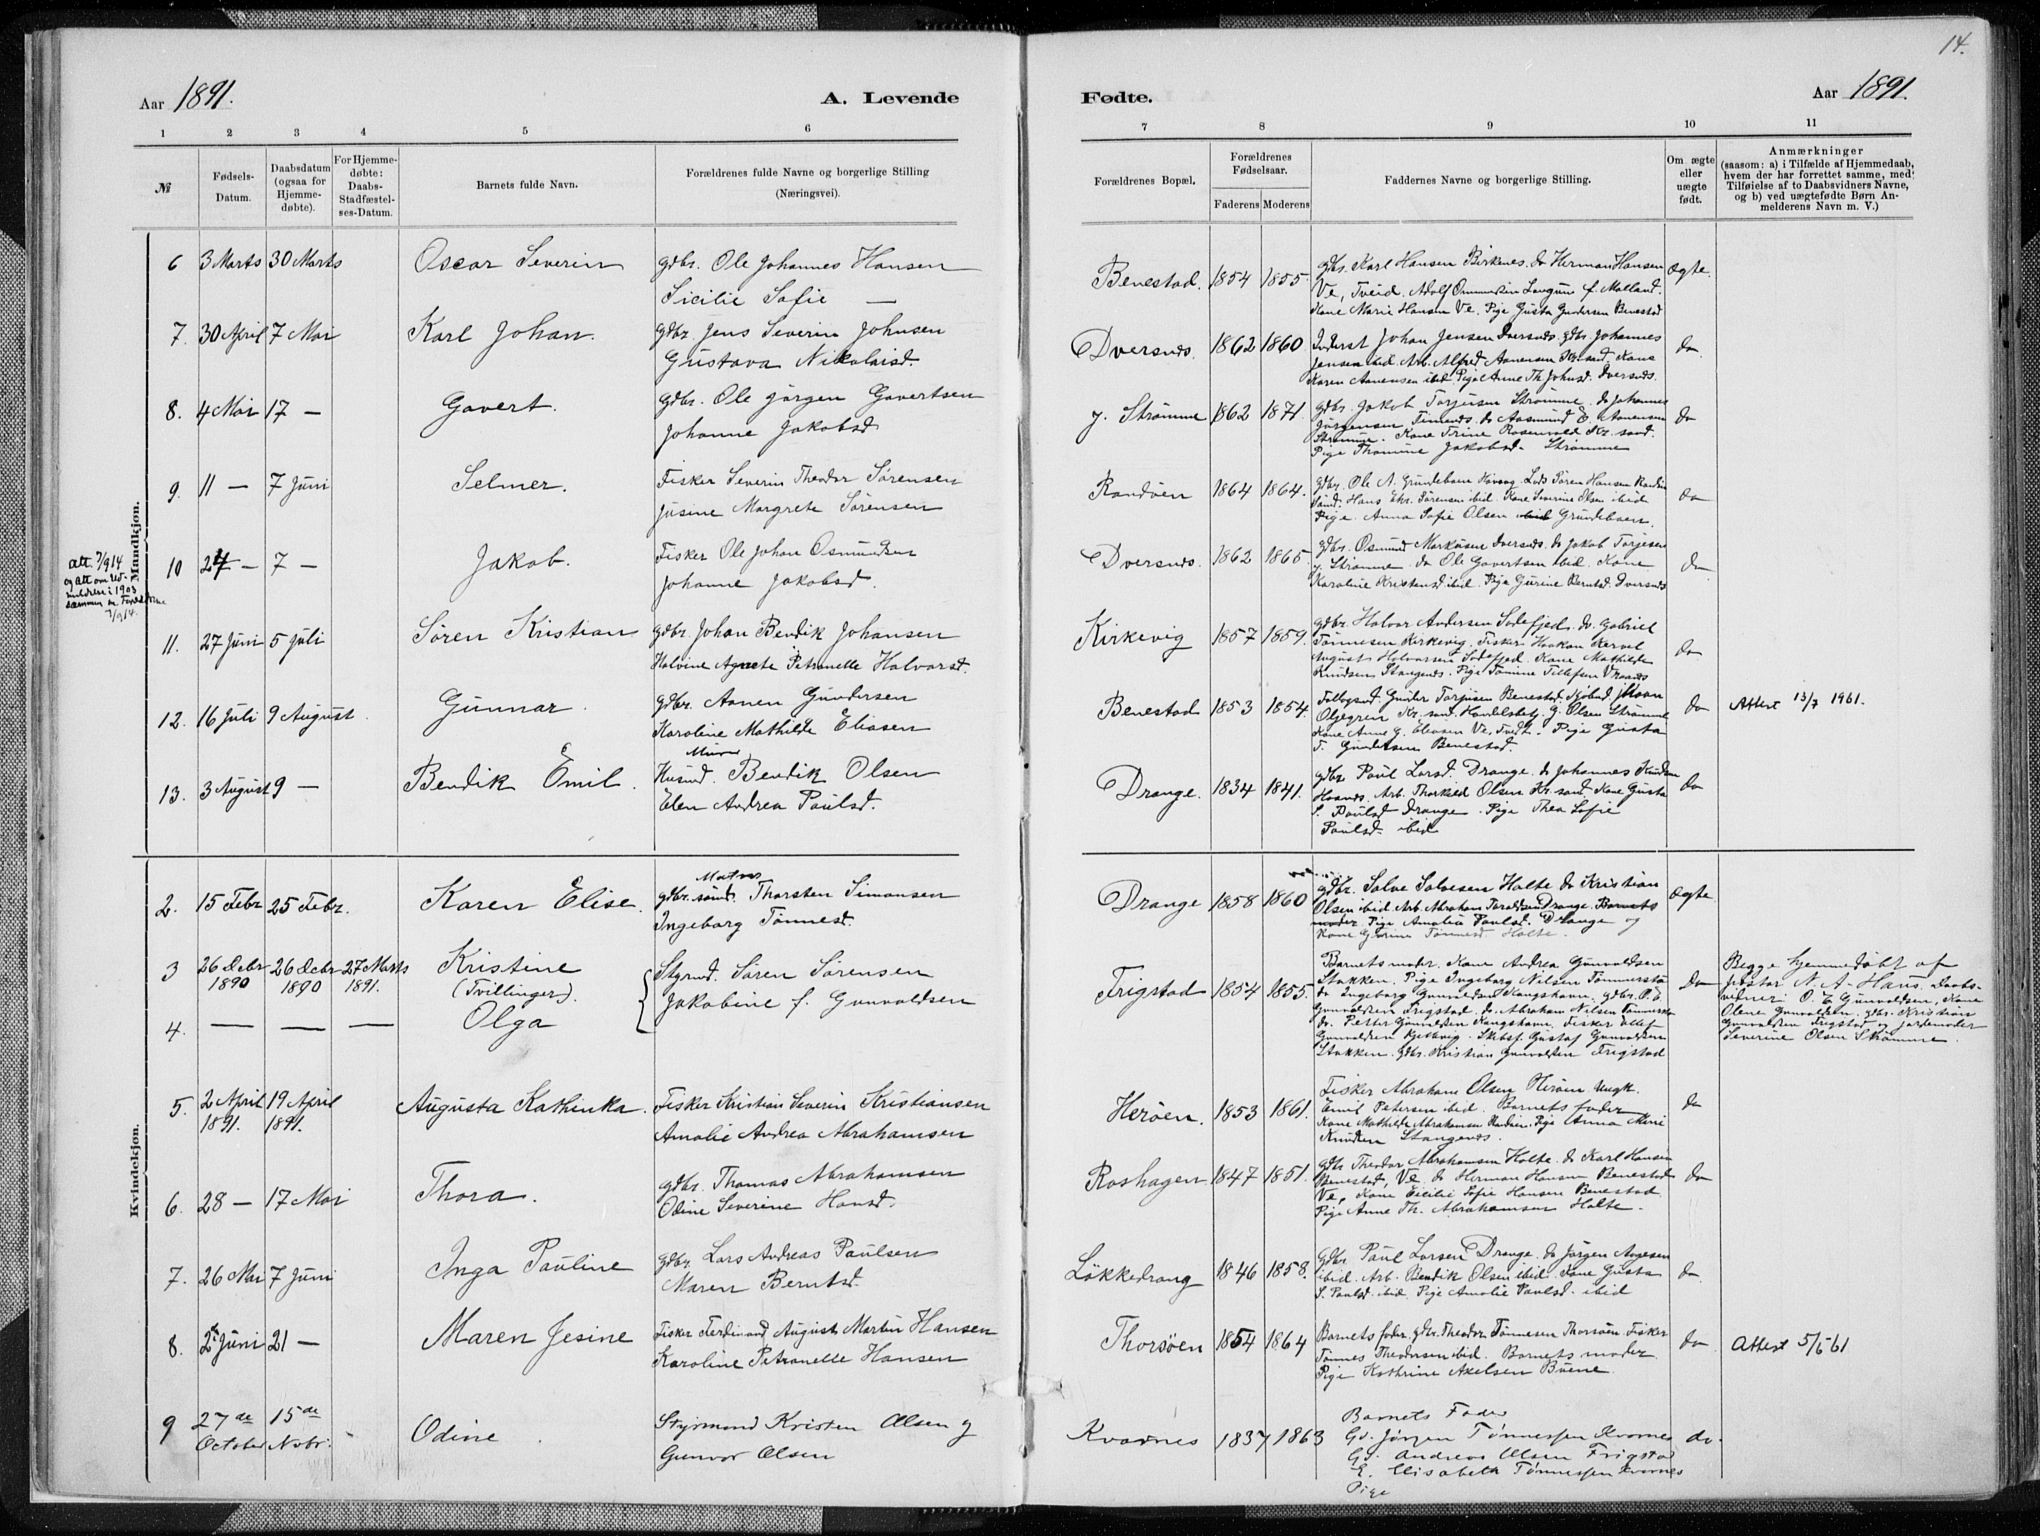 14.
Aar 1891.
A. Levende
Fødte.
Aar 1891.
1 2 3 4 5 6
7 8 9 10 11
№
Fødsels-
Datum.
Daabsdatum
(ogsaa for
Hjemme-
døbte).
For Hjemme-
døbte:
Daabs-
Stadfæstel-
ses-Datum.
Barnets fulde Navn.
Forældrenes fulde Navne og borgerlige Stilling
(Næringsvei).
Forældrenes Bopæl.
Forældrenes
Fødselsaar.
Faderens Moderens
Faddernes Navne og borgerlige Stilling.
Om ægte
eller
uægte
født.
Anmærkninger
(saasom: a) i Tilfælde af Hjemmedaab,
hvem der har forrettet samme, med
Tilføielse af to Daabsvidners Navne,
og b) ved uægtefødte Børn An-
melderens Navn m. V.)
Mandkjøn.
6 3 Marts 30 Marts Oscar Severin
Gdbr. Ole Johannes Hansen
Sicilie Sofie —
Benestad. 1854 1855.
Gdbr. Karl Hansen Birkenes. do Herman Hansen
Ve, Tveid. Adolf Ommundsen Langum f. Malland.
Kone Marie Hansen Ve. Pige Gusta Gundersen Benestad
Ægte.
7. 30 April 7 Mai Karl Johan.
Gdbr. Jens Severin Johnsen
Gustava Nikolaisd.
Dversnes. 1862 1860
Inderst Johan Jensen Dversnes. Gdbr. Johannes
Jensen ibid. Arb. Alfred Aanensen Kr.sand. Kone
Karen Aanensen ibid. Pige Anne Th. Johnsd. Dversnes.
do
8. 4 Mai 17 — Gavert.
Gdbr. Ole Jørgen Gavertsen
Johanne Jakobsd
y. Strømme 1862 1871.
Gdbr. Jakob Torjusen Strømme. do Johannes
Jørgensen Timenes. do Aasmund E. Aanensen
Strømme. Kone Trine Rosenvold Kr.sand.
Pige Thomine Jakobsd. Strømme
do
9. 11 — 7 Juni Selmer.
Fisker Severin Theodor Sørensen
Josine Margrete Sørensen
Randøen 1864 1864.
Gdbr. Ole A. Grundebaen Høvaag. Lods Søren Hansen Randøe
sund. Hans Chr. Sørensen ibid. Kone Severine Olsen ibid.
Pige Anna Sofie Olsen Grundebaen.
do
Att. 7/9 14
og Att om Ud-
meldelse i 1903
sammen m Forældrene
7/9 14.
10 24 — 7 — Jakob.
Fisker Ole Johan Osmundsen
Johanne Jakobsd.
Dversnes. 1862 1865.
Gdbr. Osmund Markusen Dversnes. do Jakob Torjesen
y. Strømme. do Ole Gavertsen ibid. Kone
Karoline Kristensd ibid. Pige Gurine Berntsd. Dversnes
do
11. 27 Juni 5 Juli Søren Kristian
Gdbr. Johan Bendik Johansen
Halvine Agnete Petronelle Halvorsd.
Kirkevig 1857 1859.
Gdbr. Halvor Andersen Sodefjed. do Gabriel
Tønnesen Kirkevig. Fisker Haakon Kervel
August Halvorsen Sodefjed. Kone Mathilde
Knudsen Stangenes. Pige Tomine Tellefsen Vraanes
do
12. 16 Juli 9 August. Gunnar.
Gdbr. Aanen Gundersen
Karoline Mathilde Eliasen
Benestad 1853 1854.
Gunder Torjusen Benestad. Johan
Oljegren Kr.sand. Handelsbetj. G. Olsen Strømme
Kone Anne G. Eliasen Ve, Tveit. Pige Gusta
T. Gundersen Benestad.
do Attest 13/7 1961.
13. 3 August 9 — Bendik Emil.
Murer
Husmd. Bendik Olsen
Elen Andrea Paulsd.
Drange. 1834 1841.
Gdbr. Paul Larsd. Drange. do Johannes Knudsen
Haanes. Arb. Thorkild Olsen Kr.sand. Kone Gusta
S. Paulsd Drange. Pige Thea Sofie
Paulsd. ibid
do
Kvindekjøn.
2. 15 Febr 25 Febr. Karen Elise.
Matros
Thorsten Simonsen
Ingeborg Tønnesd.
Drange 1858 1860
Gdbr. Salve Salvesen Holte do Kristian
Olsen ibid. Arb. Abraham Drange. Barnets
moder Pige Amalia Paulsd. Drange og
Kone Gurine Tønnesd Holte.
Ægte
3 26 Debr 1890 26 Debr 1890 27 Marts 1891. Kristine
(Tvillinger).
4. — — — Olga
Styrmd. Søren Sørensen
Jakobine f. Gunvaldsen
Frigstad 1854 1855.
Barnets moder. Kone Andrea Gunvaldsen
Stokken. Pige Ingeborg Nilsen Tømmerstø
do Ingeborg Gunvaldsen Kongshavn. Gdbr. O. E.
Gunvaldsen Frigstad. do Abraham Nilsen Tømmerstø
do. Petter Gunvaldsen Kongshavn. Fisker Ellef
Gunvaldsen Kjelbvig. Skibsf. Gustaf Gunvaldsen
Stokken. Gdbr. Kristian Gunvaldsen Frigstad
do
Begge hjemmedøbt af
pastor N. A. Hans. Daabs-
vidner: O. E. Gunvaldsen, Kone
Olene Gunvaldsen. Gdbr. Kristian
Gunvaldsen Frigstad og Jordemoder
Severine Olsen Strømme.
5. 2 April 1891. 19 April 1891. Augusta Kathinka.
Fisker Kristian Severin Kristiansen
Amalie Andrea Abrahamsen
Herøen. 1853 1861.
Fisker Abraham Olsen Herøen Ungk.
Emil Petersen ibid. Barnets fader
Kone Mathilde Abrahamsen Randøen. Pige Anna Marie
Knudsen Stangenes.
do
6. 28 — 17 Mai Thora.
Gdbr. Thomas Abrahamsen
Odine Severine Hansd.
Roshagen 1847 1851.
Gdbr Theodor Abrahamsen Holte. do Karl Hansen
Benestad, Ve do Herman Hansen Benestad
Ve, Kone Cicilie Sofie Hansen Benestad.
Pige Anne Th. Abrahamsen Holte.
do
7. 26 Mai 7 Juni Inga Pauline
Gdbr. Lars Andreas Paulsen
Maren Berntsd.
Løkkedrang 1846 1858.
Gdbr Paul Larsen Drange. do Jørgen Aagesen
ibid. Arb. Bendik Olsen ibid. Kone Gusta
S. Paulsd. ibid. Pige Amalie Paulsd. ibid
do.
8. 2 Juni 21 — Maren Jesine
Fisker Ferdinand August Martin Hansen
Karoline Petronelle Hansen
Thorsøen 1854 1864
Barnets fader. Gdbr. Theodor Tønnesen Thorsøen. Fisker
Tønnes Theodorsen ibid. Barnets moder.
Pige Kathrine Axelsen Buene.
do Attest 5/5 61
9 27de October 15de Nobr. Odine.
Styrmand Kristen Olsen og
Gunvor Olsen
Kvarnes 1837 1863
Barnets Fader
Gd. Jørgen Tønnessen Kvarnes
Gd. Andreas Olsen Frigstad
E. Elisabeth Tønnessen Kvarnes
Pige
do.